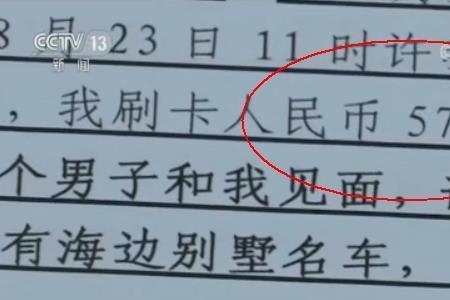 CCTV 13
新闻
8月23日11时许
，我刷卡人民币57
个男子和我见面，
有海边别墅名车，